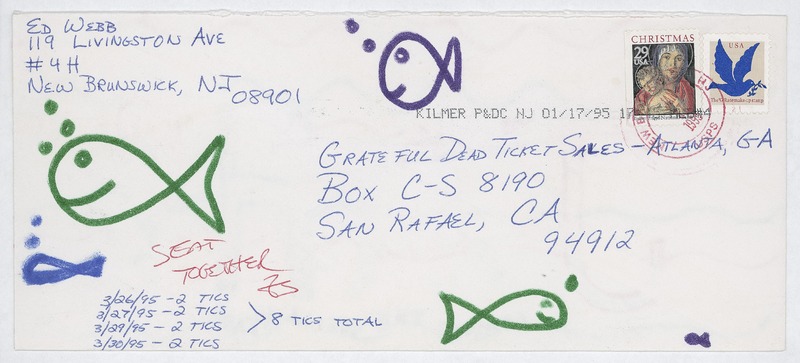 ED WEBB
119 LIVINGSTON AVE
#4H
NEW BRUNSWICK, NJ
08901
CHRISTMAS
29
USA
USA
KILMER P&DC NJ 01/17/95 #4
NJ
USPS
GRATEFUL DEAD TICKET SALES - ATLANTA, GA
BOX C-S 8190
SAN RAFAEL, CA
94912
SEAT
TOGETHER
3/26/95 - 2 TICS
3/27/95 - 2 TICS
3/29/95 - 2 TICS
3/30/95 - 2 TICS
> 8 TICS TOTAL